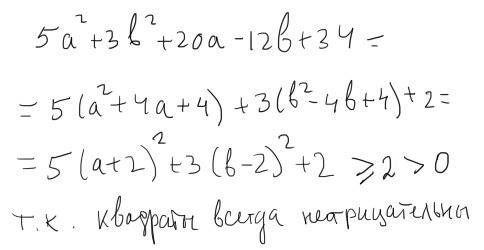 5a² + 3b² + 20a - 12b + 34 =
= 5(a² + 4a + 4) + 3(b² - 4b + 4) + 2 =
= 5(a + 2)² + 3(b - 2)² + 2 ⩾ 2 > 0
т.к. квадраты всегда неотрицательны